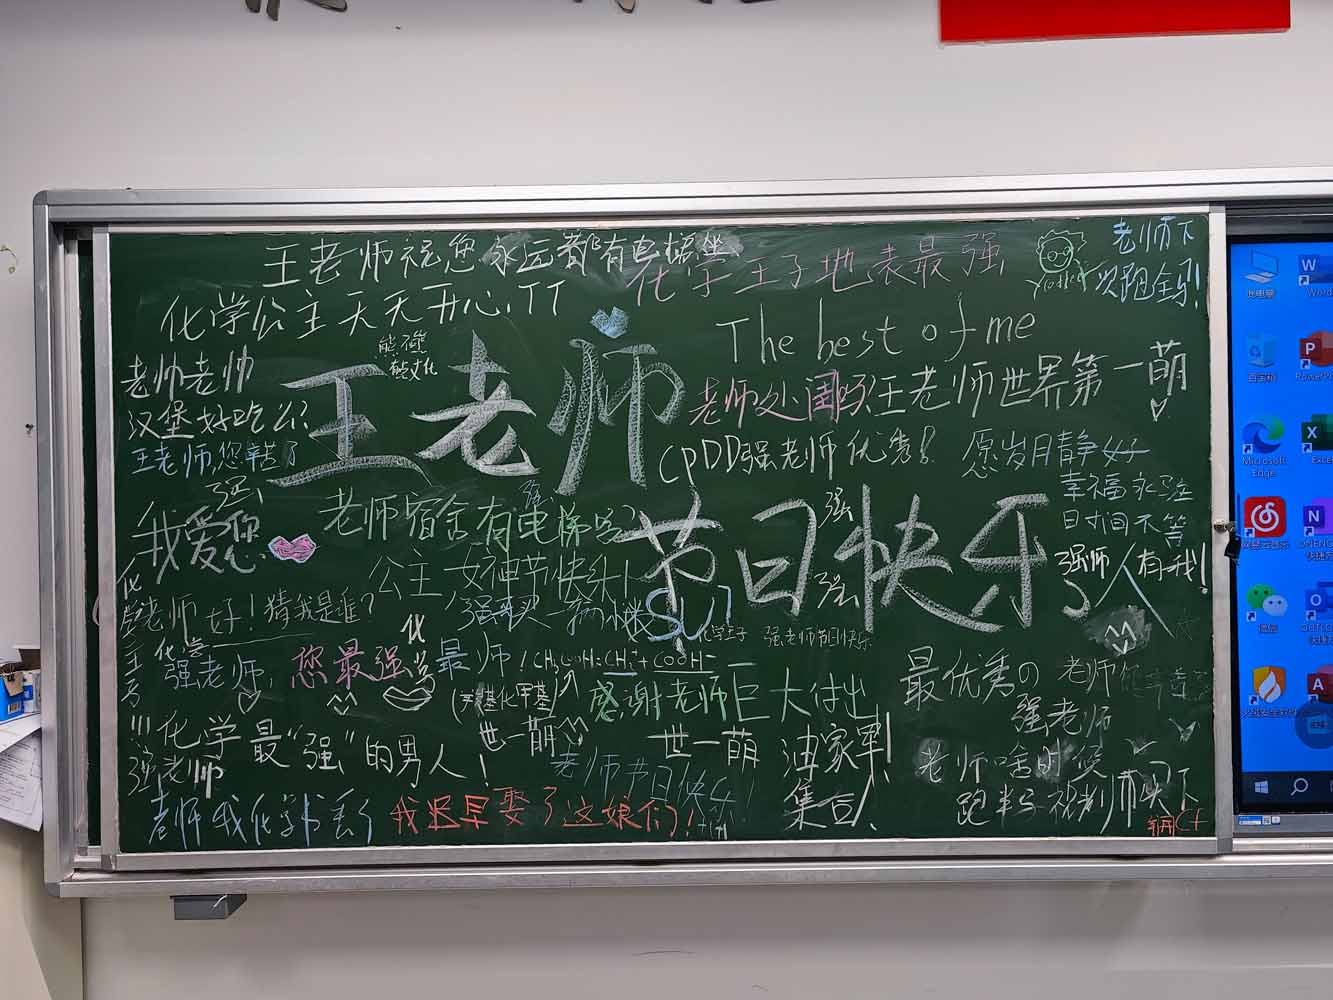 王老师祝您永远都有电梯坐
化学王子地表最强
老师下
次跑全马!
化学公主天天开心!TT
The best of me
老师老师
汉堡好吃么?
王老师,您辛苦了
能文化
王老师
老师处闺吗?
王老师世界第一萌
CPDD
强老师优秀!
愿岁月静好
幸福永驻
时间不等
强师人有我!
强
我爱您
老师宿舍有电梯吗?
节日快乐
强
强
公主,女神节快乐!
老师好!猜我是谁?
化学王子
强老师节日快乐
化学
强老师,
您最强
化学最师!
CH₃COOH=CH₃⁺+COOH⁻
感谢老师巨大付出
最优秀の
强老师
老师您辛苦
化学最“强”的男人!
强老师
世一萌
世一萌
油家军!
集合!
老师节日快乐!
老师啥时候
跑半马
老师我化学书丢了
我迟早娶了这娘们!
此电脑
Word
回收站
Microsoft
Edge
Excel
微信